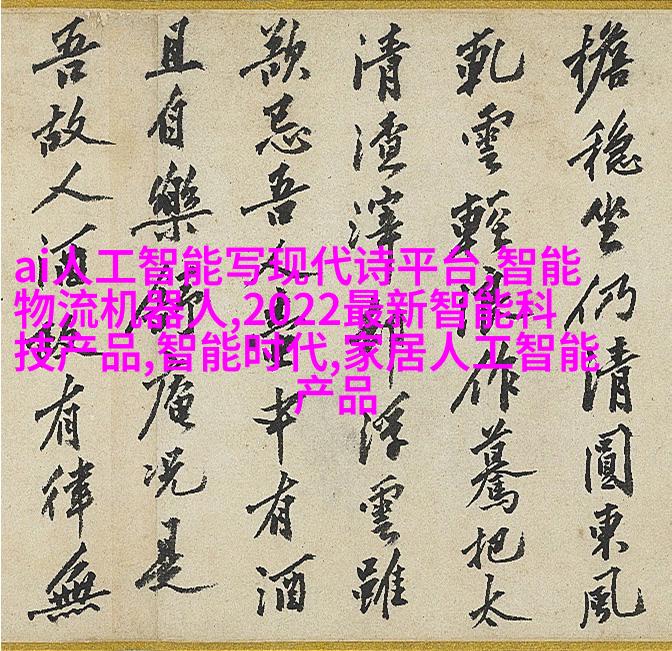 檐穩坐仍清圓東風
軋雲輕作驀把太
清渣滓浮雲雖
吾中有酒
且自樂庵况是
吾故人酒有律無
ai人工智能写现代诗平台,智能
物流机器人,2022最新智能科
技产品,智能时代,家居人工智能
产品